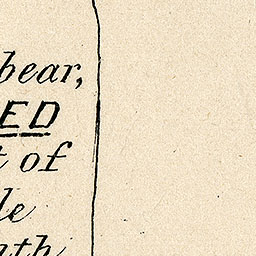 bear,
ED
t of
le
nth